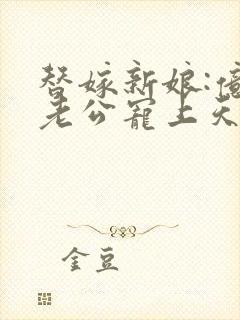 替嫁新娘:億
老公寵上天
金豆